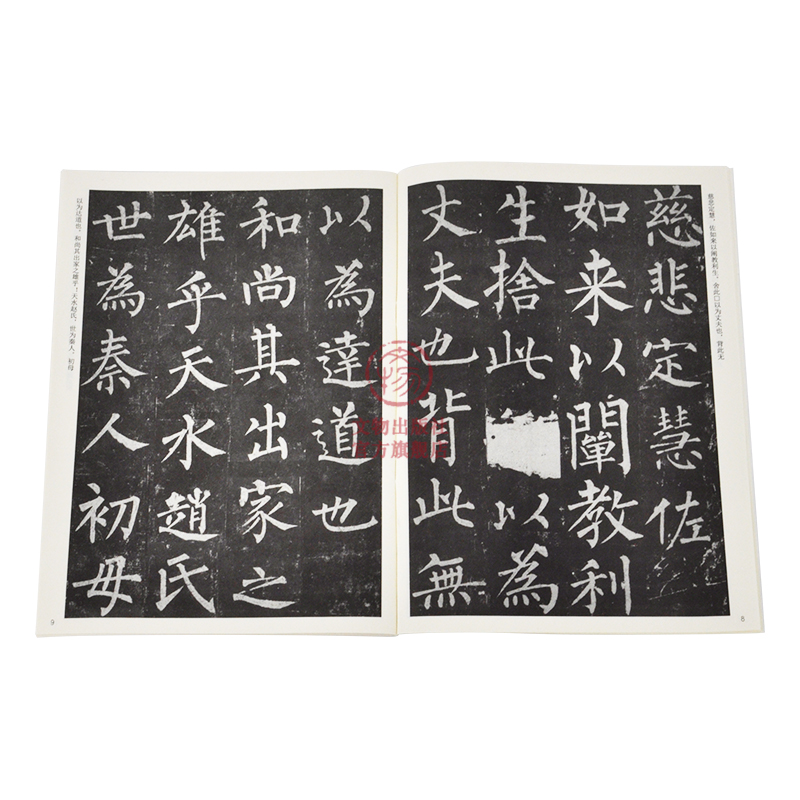 慈悲定慧，佐如来以阐教利生，舍此□以为丈夫也，背此无
慈悲定慧佐
如来以闡教利
生捨此以為
丈夫也背此無
8
以為達道也
和尚其出家之
雄乎天水趙氏
世為秦人初母
以为达道也，和尚其出家之雄乎！天水赵氏，世为秦人，初母
9
文物
文物出版社
官方旗舰店